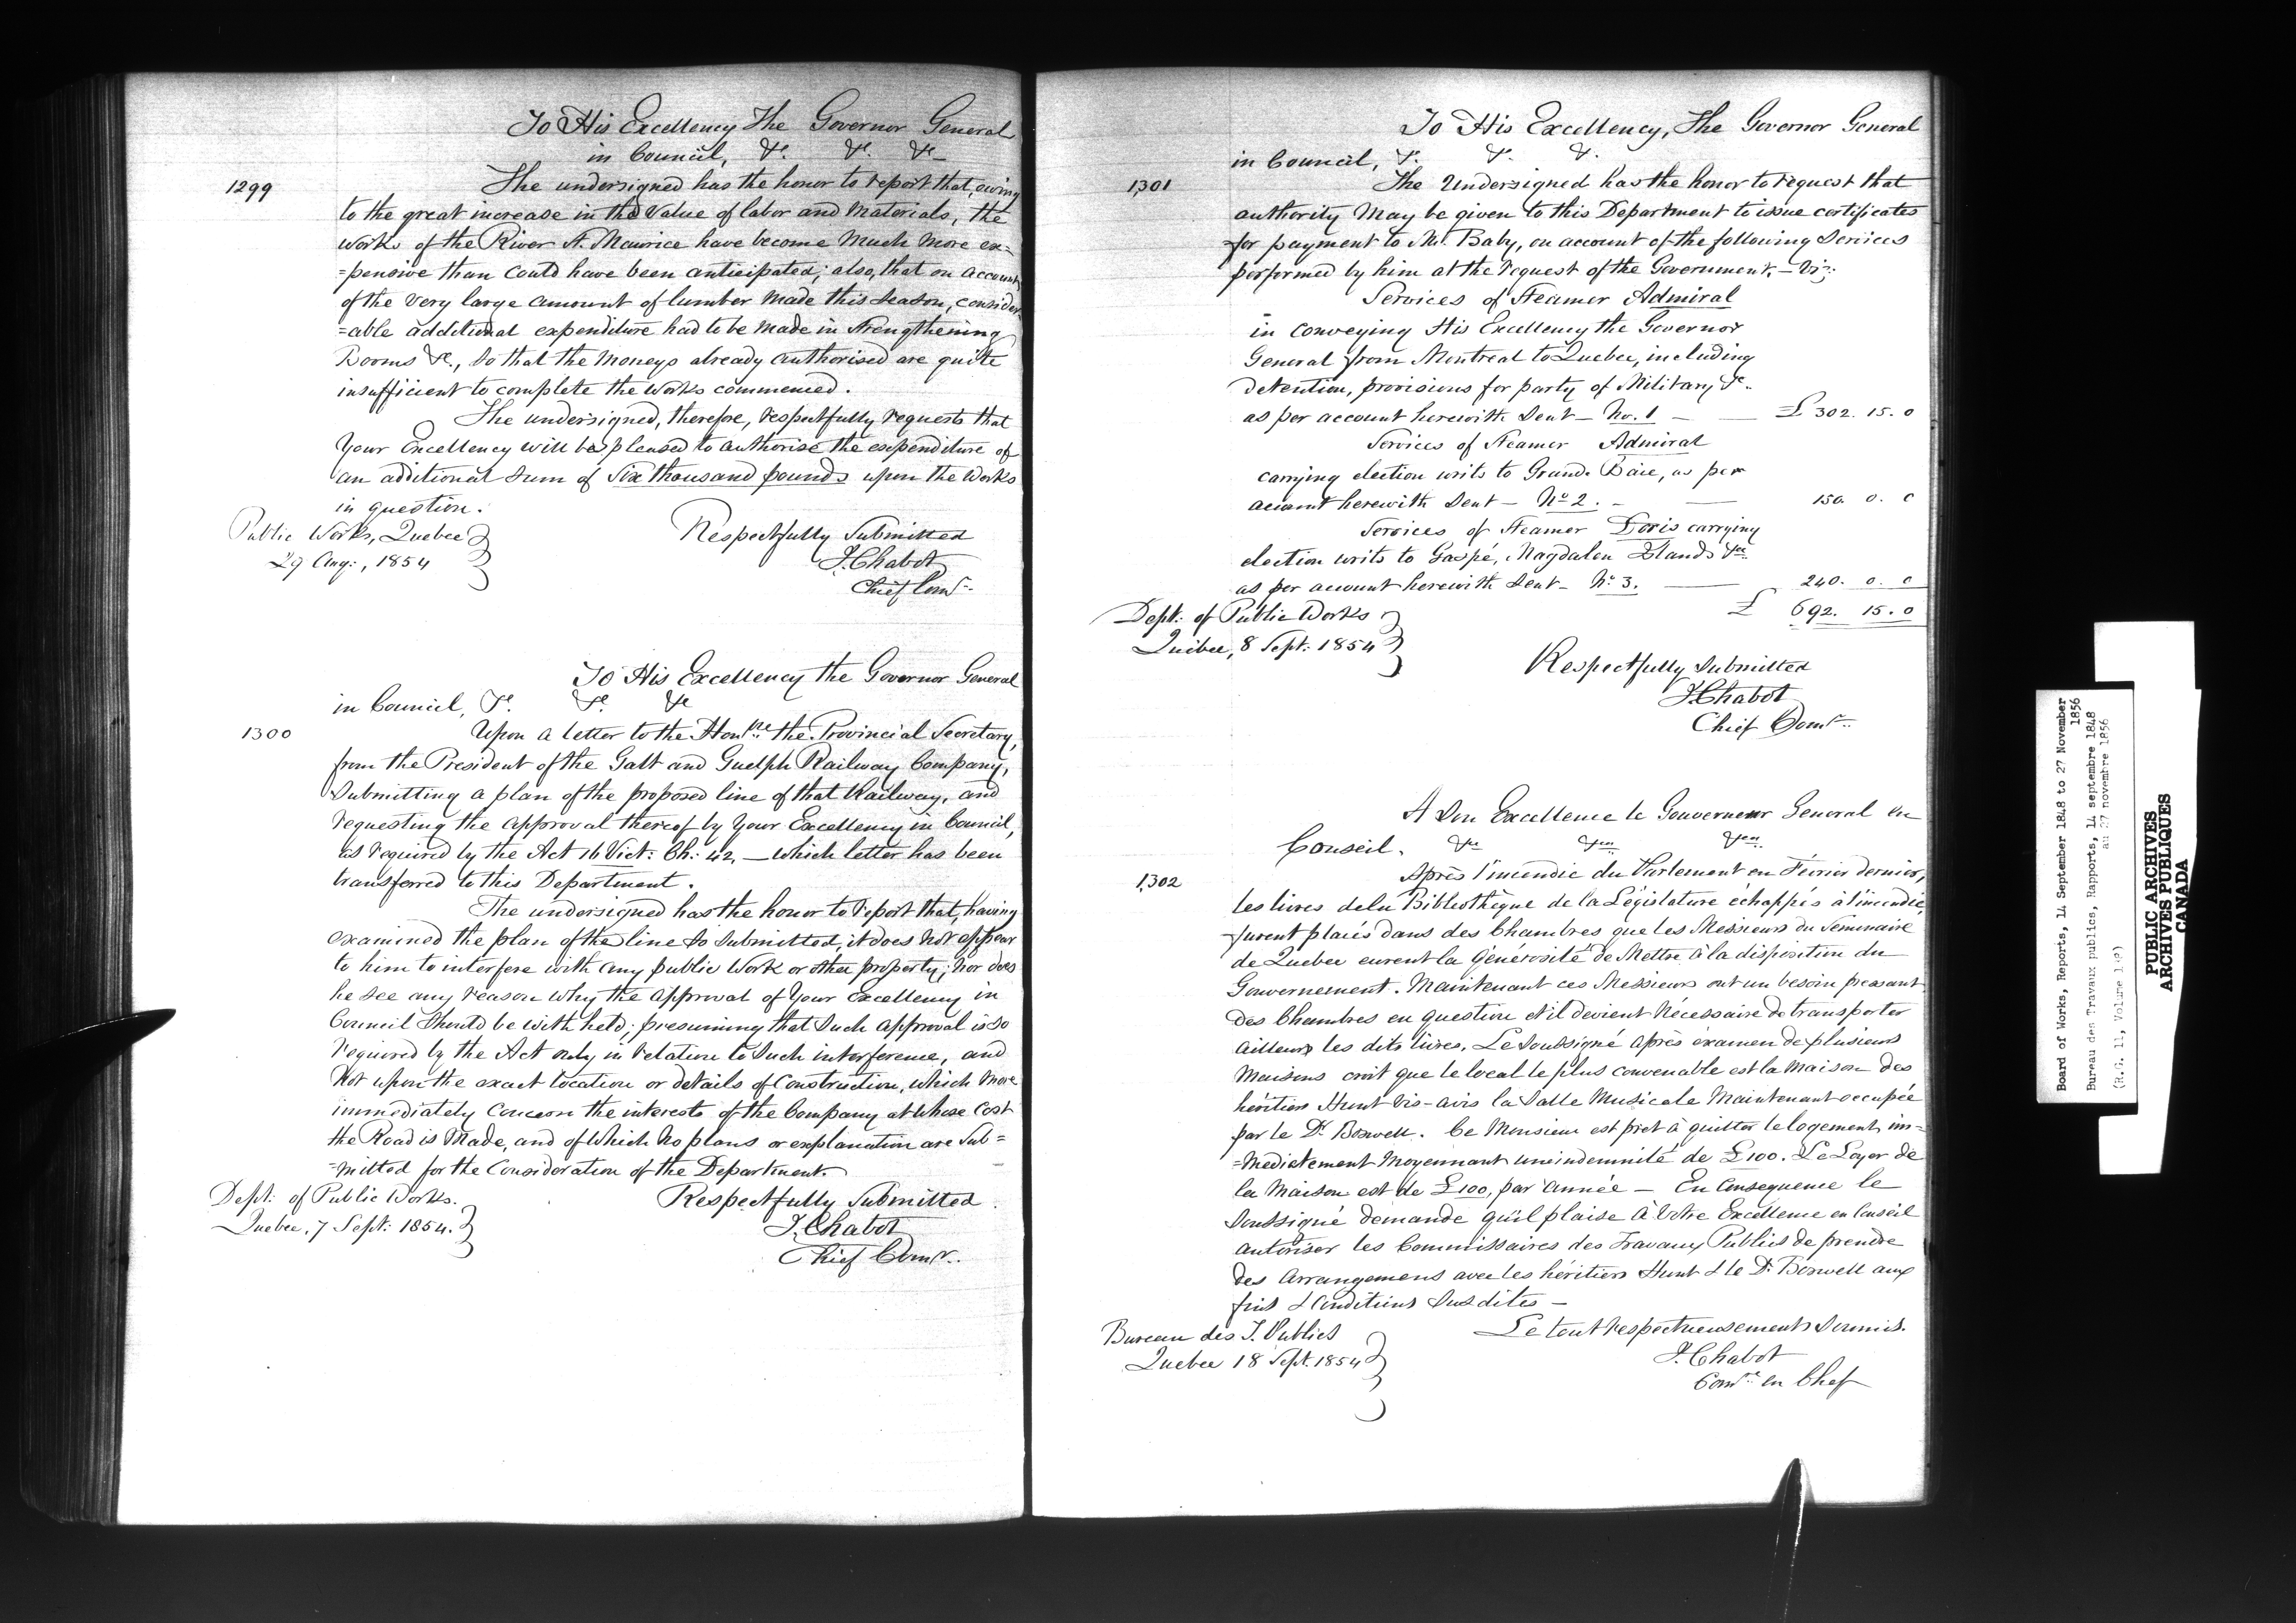 To His Excellency The Governor General
in Council, &c. &c. &c
1299
The undersigned has the honor to report that, owing
to the great increase in the value of labor and materials, the
works of the River St. Maurice have become much more ex=
=pensive than could have been anticipated; also, that on account
of the very large amount of lumber made this season, consider=
=able additional expenditure had to be made in strengthening
Booms &c., so that the moneys already authorised are quite
insufficient to complete the works commenced.
The undersigned, therefore, respectfully requests that
Your Excellency will be pleased to authorise the expenditure of
an additional sum of Six thousand pounds upon the Works
in question.
Public Works, Quebec
29 Aug:, 1854
Respectfully Submitted
J. Chabot
Chief Comr.
To His Excellency the Governor General
in Council, &c. &c. &c
1300
Upon a letter to the Honble the Provincial Secretary,
from the President of the Galt and Guelph Railway Company,
submitting a plan of the proposed line of that Railway, and
requesting the approval thereof by Your Excellency in Council,
as required by the Act 16 Vict: Ch: 42, — which letter has been
transferred to this Department.
The undersigned has the honor to report that, having
examined the plan of the line so submitted, it does not appear
to him to interfere with any public Work or other property; nor does
he see any reason why the approval of Your Excellency in
Council should be withheld; presuming that such approval is so
required by the Act only in relation to such interference, and
not upon the exact location or details of construction, which more
immediately concern the interests of the Company at whose cost
the Road is made, and of which no plans or explanation are sub=
=mitted for the consideration of the Department.
Dept: of Public Works.
Quebec, 7 Sept: 1854.
Respectfully Submitted
J. Chabot
Chief Comr.
To His Excellency, The Governor General
in Council, &. &. &.
1,301
The Undersigned has the honor to request that
authority may be given to this Department to issue certificates
for payment to Mr. Baby, on account of the following services
performed by him at the request of the Government, — Viz:
Services of Steamer Admiral
in conveying His Excellency the Governor
General from Montreal to Quebec, including
detention, provisions for party of Military &c.
as per account herewith sent — No. 1 — £ 302. 15. 0
Services of Steamer Admiral
carrying election writs to Grande Baie, as per
account herewith sent — No 2. — 150. 0. 0
Services of Steamer Doris carrying
election writs to Gaspé, Magdalen Islands &c
as per account herewith sent — No 3. — 240. 0. 0
£ 692. 15. 0
Dept: of Public Works
Quebec, 8 Sept: 1854
Respectfully Submitted
J. Chabot
Chief Comr.
A Son Excellence le Gouverneur General en
Conseil. &c &c &c
1,302
Après l'incendie du Parlement en Février dernier,
les livres de la Bibliothèque de la Législature échappés à l'incendie,
furent placés dans des Chambres que les Messieurs du Séminaire
de Quebec eurent la générosité de mettre à la disposition du
Gouvernement. Maintenant ces Messieurs ont un besoin pressant
des Chambres en question et il devient nécessaire de transporter
ailleurs les dits livres. Le Soussigné après éxamen de plusieurs
maisons croit que le local le plus convenable est la maison des
héritiers Hunt vis-avis la Salle Musicale maintenant occupée
par le Dr. Boswell. Ce Monsieur est pret à quitter le logement im=
=mediatement moyennant une indemnité de £100. Le Loyer de
la Maison est de £100, par année — En Consequence le
Soussigné demande qu'il plaise à Votre Excellence en Conseil
autoriser les Commissaires des Travaux Publics de prendre
des arrangemens avec les héritiers Hunt & le Dr. Boswell aux
fins & Conditions susdites —
Le tout respectueusement soumis.
Bureau des T. Publics
Quebec 18 Sept. 1854
J. Chabot
Comre en Chef
Board of Works, Reports, 14 September 1848 to 27 November
1856
Bureau des Travaux publics, Rapports, 14 septembre 1848
au 27 novembre 1856
(R.G. 11, Volume
PUBLIC ARCHIVES
ARCHIVES PUBLIQUES
CANADA